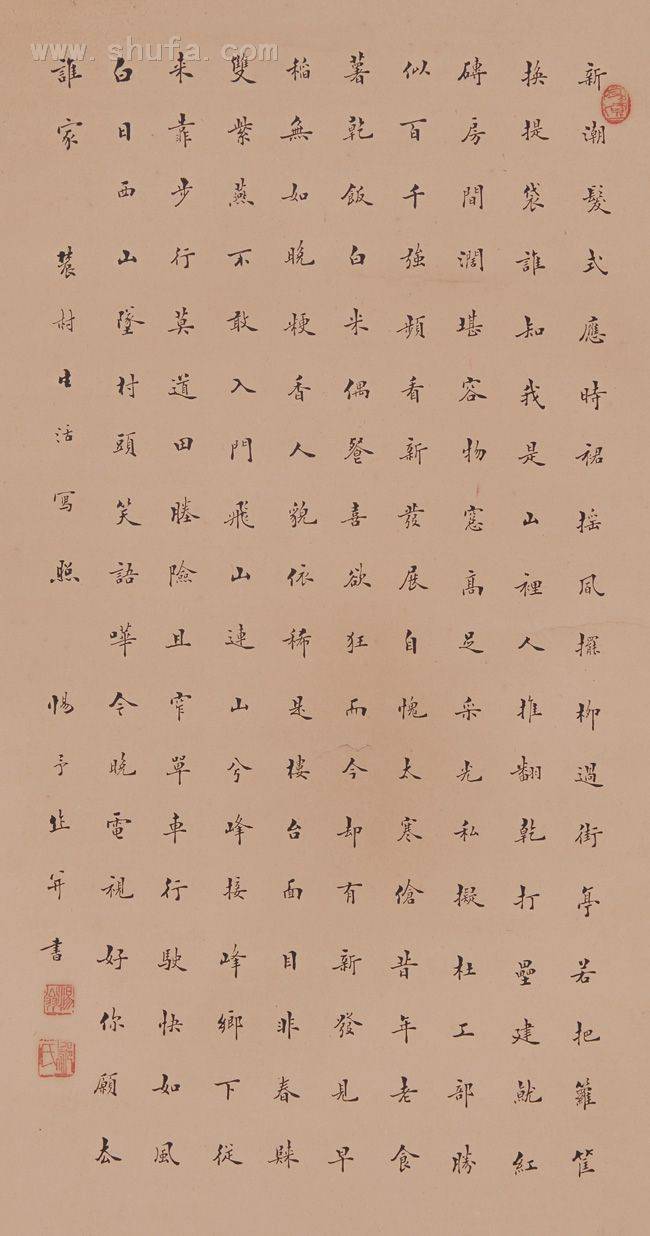 www.shufa.com
新潮髮式應時裙搖風擺柳過街亭若把籮筐
換提袋誰知我是山裡人推翻乾打壘建就紅
磚房間濶堪容物窓高足采光私擬杜工部勝
似百千強頻看新發展自愧太寒傖昔年老食
薯乾飯白米偶餐喜欲狂而今却有新發見早
稻無如晚粳香人貌依稀是樓台面目非春歸
雙紫燕不敢入門飛山連山兮峰接峰鄉下從
来靠步行莫道田塍險且窄單車行駛快如風
白日西山墜村頭笑語嘩今晚電視好你願去
誰家 農村生活寫照 惕予作并書